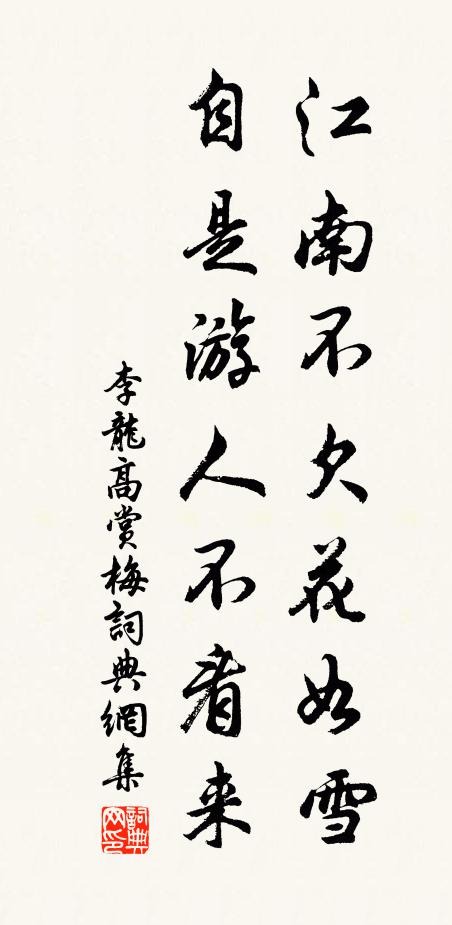 江南不欠花如雪
自是游人不看来
李龍高賞梅詞典網集
詞典网印